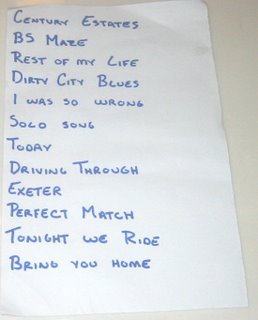 CENTURY ESTATES
BS MAZE
REST OF MY LIFE
DIRTY CITY BLUES
I WAS SO WRONG
SOLO SONG
TODAY
DRIVING THROUGH
EXETER
PERFECT MATCH
TONIGHT WE RIDE
BRING YOU HOME